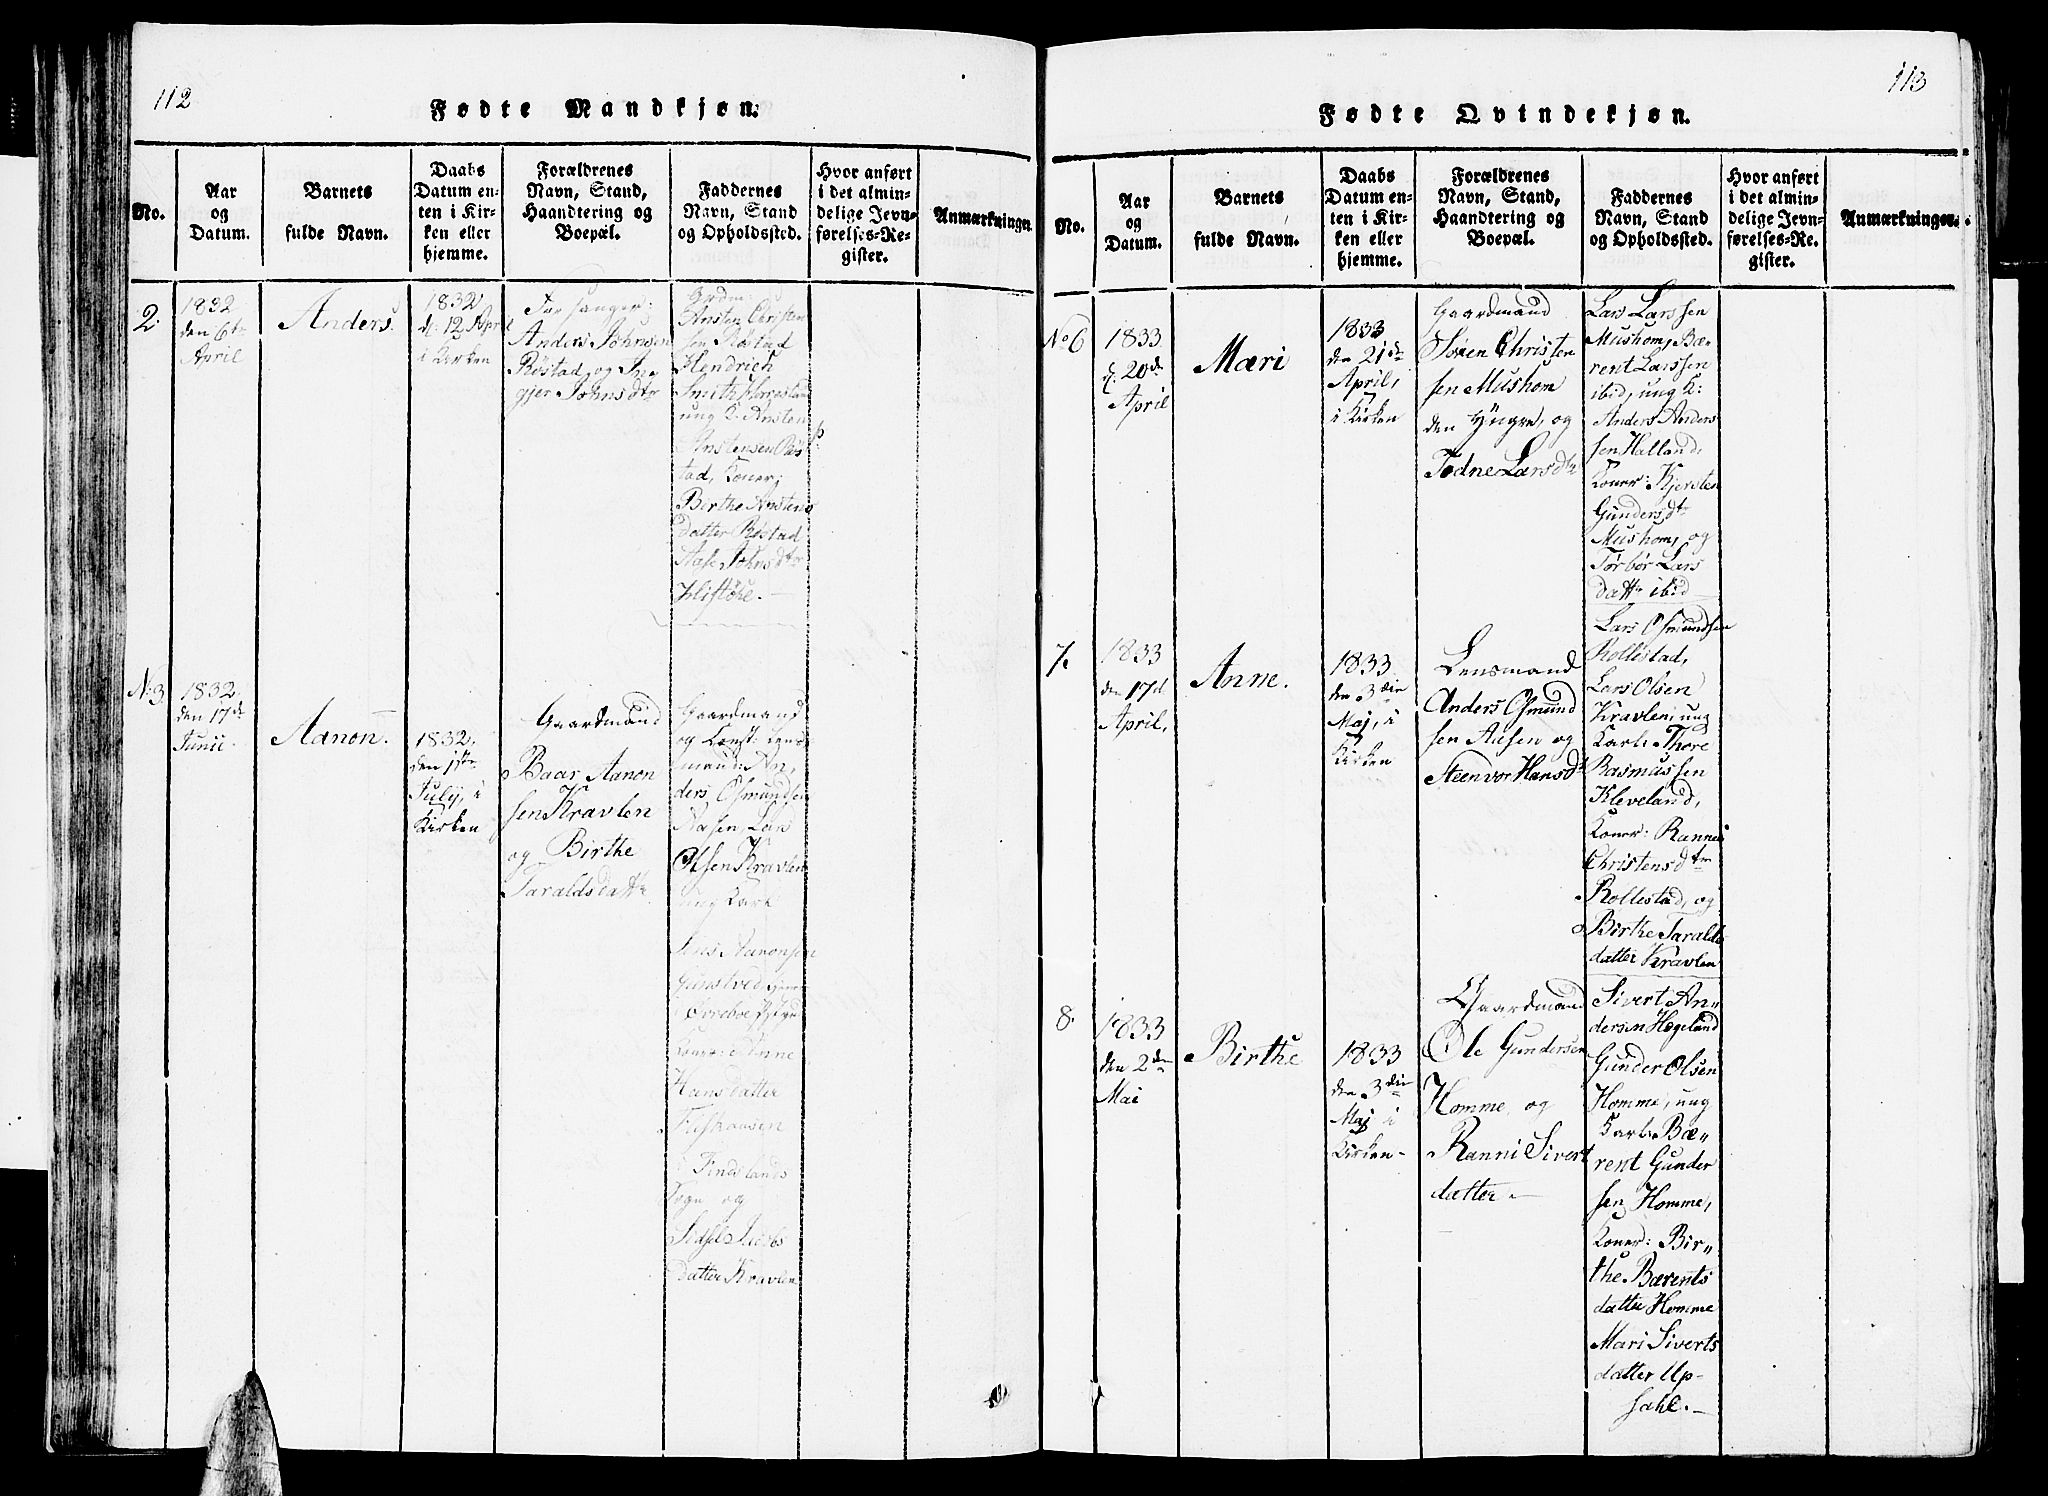 112
Fødte Mandkjøn.
No.
Aar
og
Datum.
Barnets
fulde Navn.
Daabs
Datum en-
ten i Kir-
ken eller
hjemme.
Forældrenes
Navn, Stand,
Haandtering og
Boepæl.
Faddernes
Navn, Stand
og Opholdssted.
Hvor anført
i det almin-
delige Jevn-
førelses-Re-
gister.
Anmærkninger.
2.
1832
den 6te
April
Anders.
1832
d: 12 April
i Kirken
Forsanger:
Anders Johnsen
Røstad og In-
gjer Johnsdtr
Grdm:
Ansten Christen
sen Røstad
Hendrich
Smith
ung K: Ansten
Anstensen Røs
tad, Koner;
Berthe Anstens
datter Røstad
Aase Johnsdtr
No 3.
1832.
den 17de
Junii.
Aanon.
1832.
den 1ste
July, i
Kirken
Gaardmand
Baar Aanon
sen Kravlen
og Birthe
Taraldsdattr
Gaardmand
og Const: Lens
mand: An,
ders Osmundsen
Aasen, Lars
Olsen Kravlen
ung Karl
Jens Aanonsen
Koner: Anne
Hansdatter
i Findslands
Sogn og
Sidsel Jacobs
datter Kravlen
113
Fødte Qvindekjøn.
No.
Aar
og
Datum.
Barnets
fulde Navn.
Daabs
Datum en-
ten i Kir-
ken eller
hjemme.
Forældrenes
Navn, Stand,
Haandtering og
Boepæl.
Faddernes
Navn, Stand
og Opholdssted.
Hvor anført
i det almin-
delige Jevn-
førelses-Re-
gister.
Anmærkninger.
No 6
1833
d. 20de
April
Mæri
1833
den 21de
April,
i Kirken
Gaardmand
Søren Christen
sen Mushom
den Yngre, og
Todne Larsdtr
Lars Larssen
Mushom, Bæ-
rent Larssen
ibid, ung K:
Anders Anders
sen Halland,
Koner: Kjersten
Gundersdtr
Mushom, og
Torbør Lars
dattr ibid
7.
1833
den 17d
April,
Anne.
1833
den 3die
Maj, i
Kirken
Lensmand
Anders Osmund
sen Aasen og
Steenvor Hansdtr
Lars Osmundsen
Rollestad,
Lars Olsen
Kravlen, ung
Karl: Thore
Rasmussen
Kleveland,
Koner: Rannei
Christensdtr
Rollestad, og
Birthe Taralds
datter Kravlen
8.
1833
den 2den
Mai
Birthe
1833
den 3die
Maj i
Kirken-
Gaardmand
Ole Gundersen
Homme, og
Ranni Sivert
datter.
Sivert An„
dersen Hægeland
Gunder Olsen
Homme, ung
Karl: Bæ„
rent Gunder
sen Homme,
Koner: Bir„
the Bærents
datter Homme
Mari Siverts
datter Up-
sahl.-